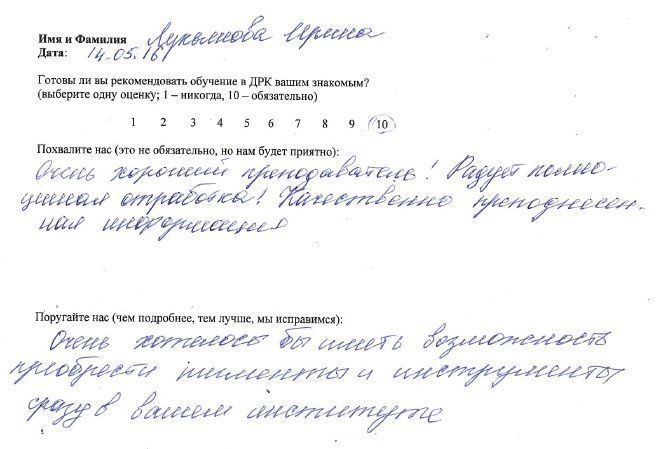 Имя и Фамилия Лукьянова Ирина
Дата: 14.05.16
Готовы ли вы рекомендовать обучение в ДРК вашим знакомым?
(выберите одну оценку; 1 – никогда, 10 – обязательно)
1 2 3 4 5 6 7 8 9 10
Похвалите нас (это не обязательно, но нам будет приятно):
Очень хороший преподаватель! Радует полно-
ценная отработка! Качественно преподнесен-
ная информация
Поругайте нас (чем подробнее, тем лучше, мы исправимся):
Очень хотелось бы иметь возможность
приобрести пигменты и инструменты
сразу в вашем институте